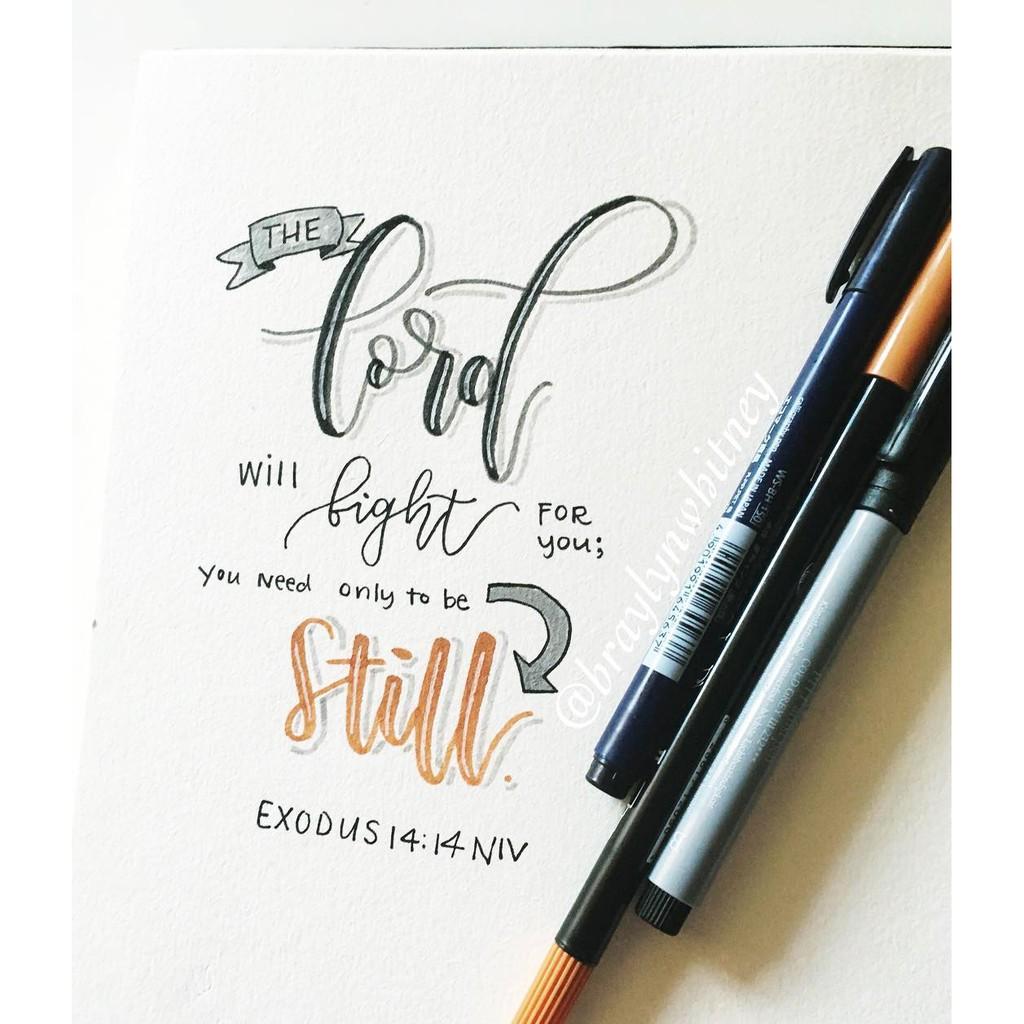 THE
Lord
will fight FOR
you;
you need only to be
Still.
EXODUS 14:14 NIV
@braylynwhitney
MADE IN JAPAN
WS-BH 150